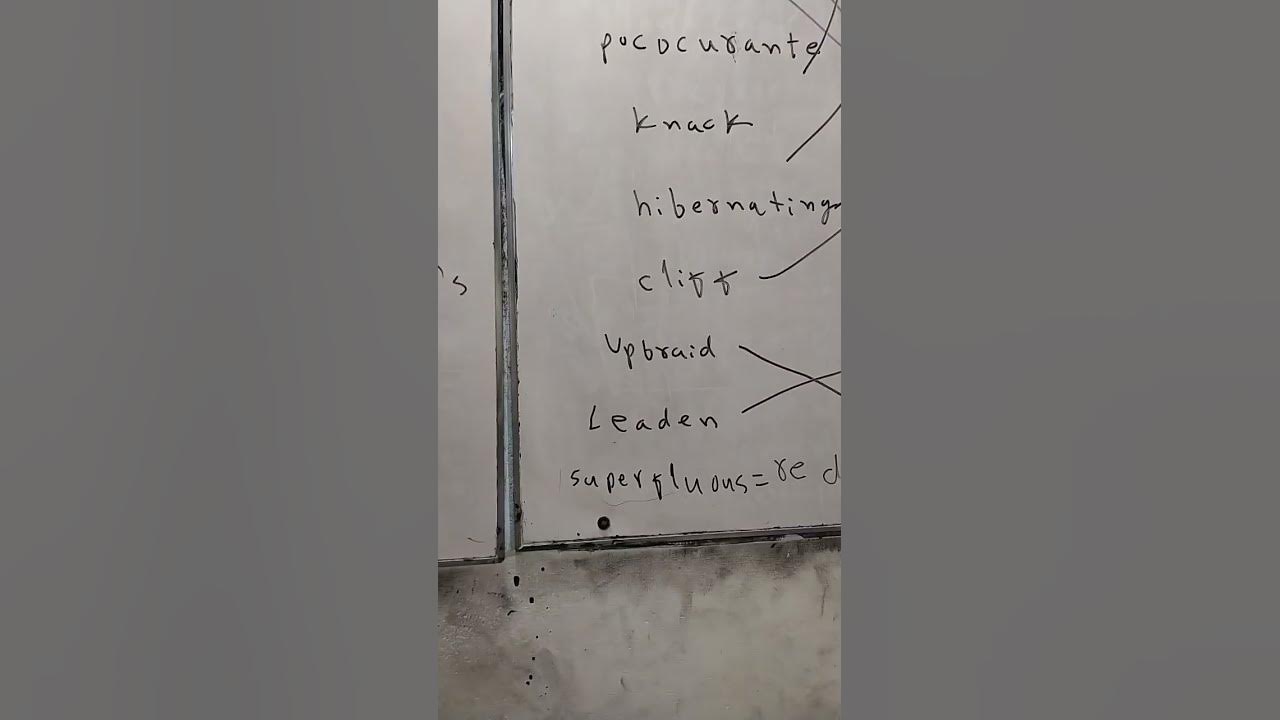 pococurante
knack
hibernating
cliff
Upbraid
Leaden
superfluous = re d
's